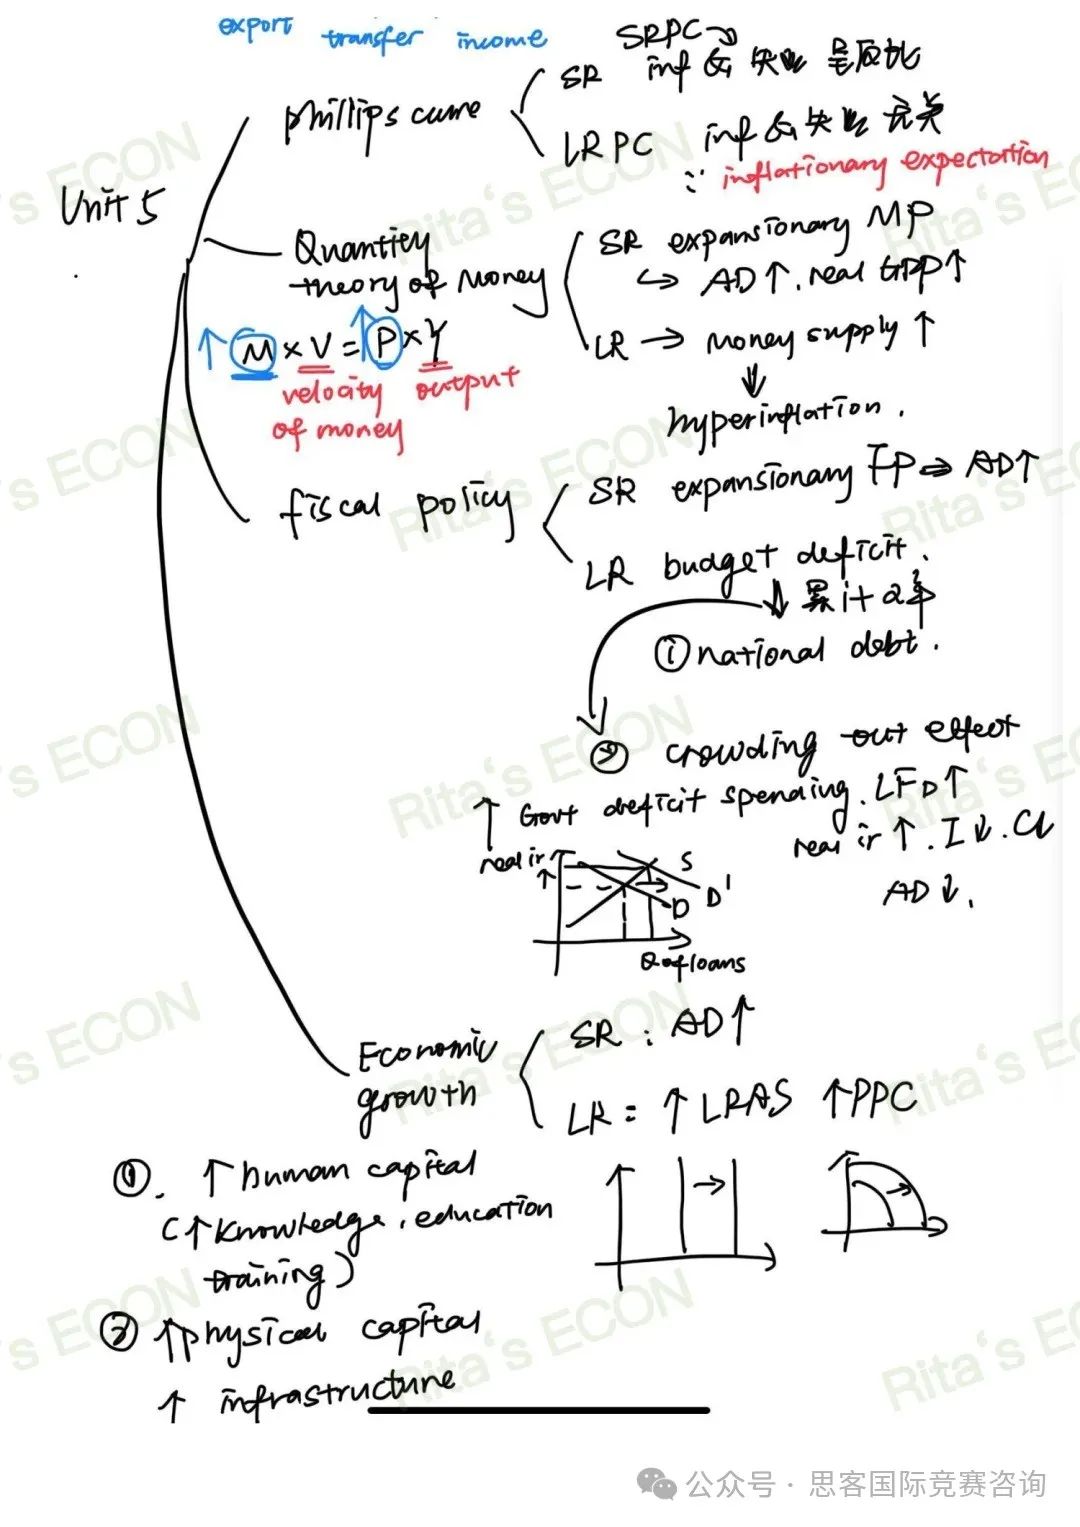 export transfer income
Unit 5
phillips curve
SRPC
SR inf & 失业 呈反比
LRPC inf & 失业 无关
∵ inflationary expectation
Quantity
theory of Money
↑ M × V = ↑ P × Y
velocity output
of money
SR expansionary MP
↳ AD ↑. real GDP ↑
LR → money supply ↑
↓
hyperinflation.
fiscal policy
SR expansionary FP ⇒ AD↑
LR budget deficit.
↓ 累计
① national debt.
② crowding out effect
↑ Govt deficit spending. LFD ↑
real ir ↑. I ↓.
AD ↓.
real ir
↑
S
D'
D
Q of loans
Economic
growth
SR : AD ↑
LR = ↑ LRAS ↑ PPC
①. ↑ human capital
(↑ knowledge, education
training)
② ↑ physical capital
↑ infrastructure
Rita's ECON
公众号 · 思客国际竞赛咨询